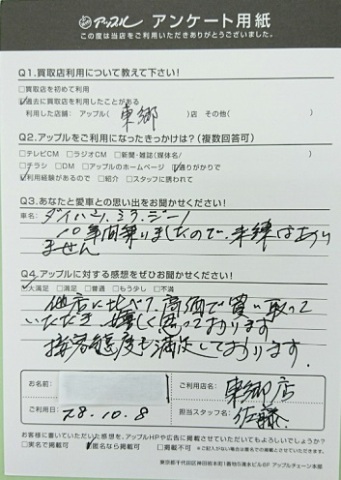 アップル アンケート用紙
この度は当店をご利用いただきありがとうございました。
Q1.買取店利用について教えて下さい!
□買取店を初めて利用
☑過去に買取店を利用したことがある
利用した店舗: アップル( 東郷 )店 その他( )
Q2.アップルをご利用になったきっかけは?(複数回答可)
□テレビCM □ラジオCM □新聞・雑誌(媒体名/ )
□チラシ □DM □アップルのホームページ ☑通りがかりで
☑利用経験があるので □紹介 □スタッフに誘われて
Q3.あなたと愛車との思い出をお聞かせください!
車名: ダイハツ.ミラ.ジーノ
10年間乗りましたので、未練はあり
ません
Q4.アップルに対する感想をぜひお聞かせください!
☑大満足 □満足 □普通 □もう少し □不満
他店に比べて、高価で買い取って
いただき、嬉しく思っております
接客態度も満足しております.
お名前:
ご利用店名: 東郷店
ご利用日: 28.10.8
担当スタッフ名: 佐藤
お客様に書いていただいた感想を、アップルHPや広告に掲載させていただいてもよろしいでしょうか?
□実名で掲載可 ☑匿名なら掲載可 □掲載不可 ※ご記入がない場合は匿名での掲載とさせていただきます。